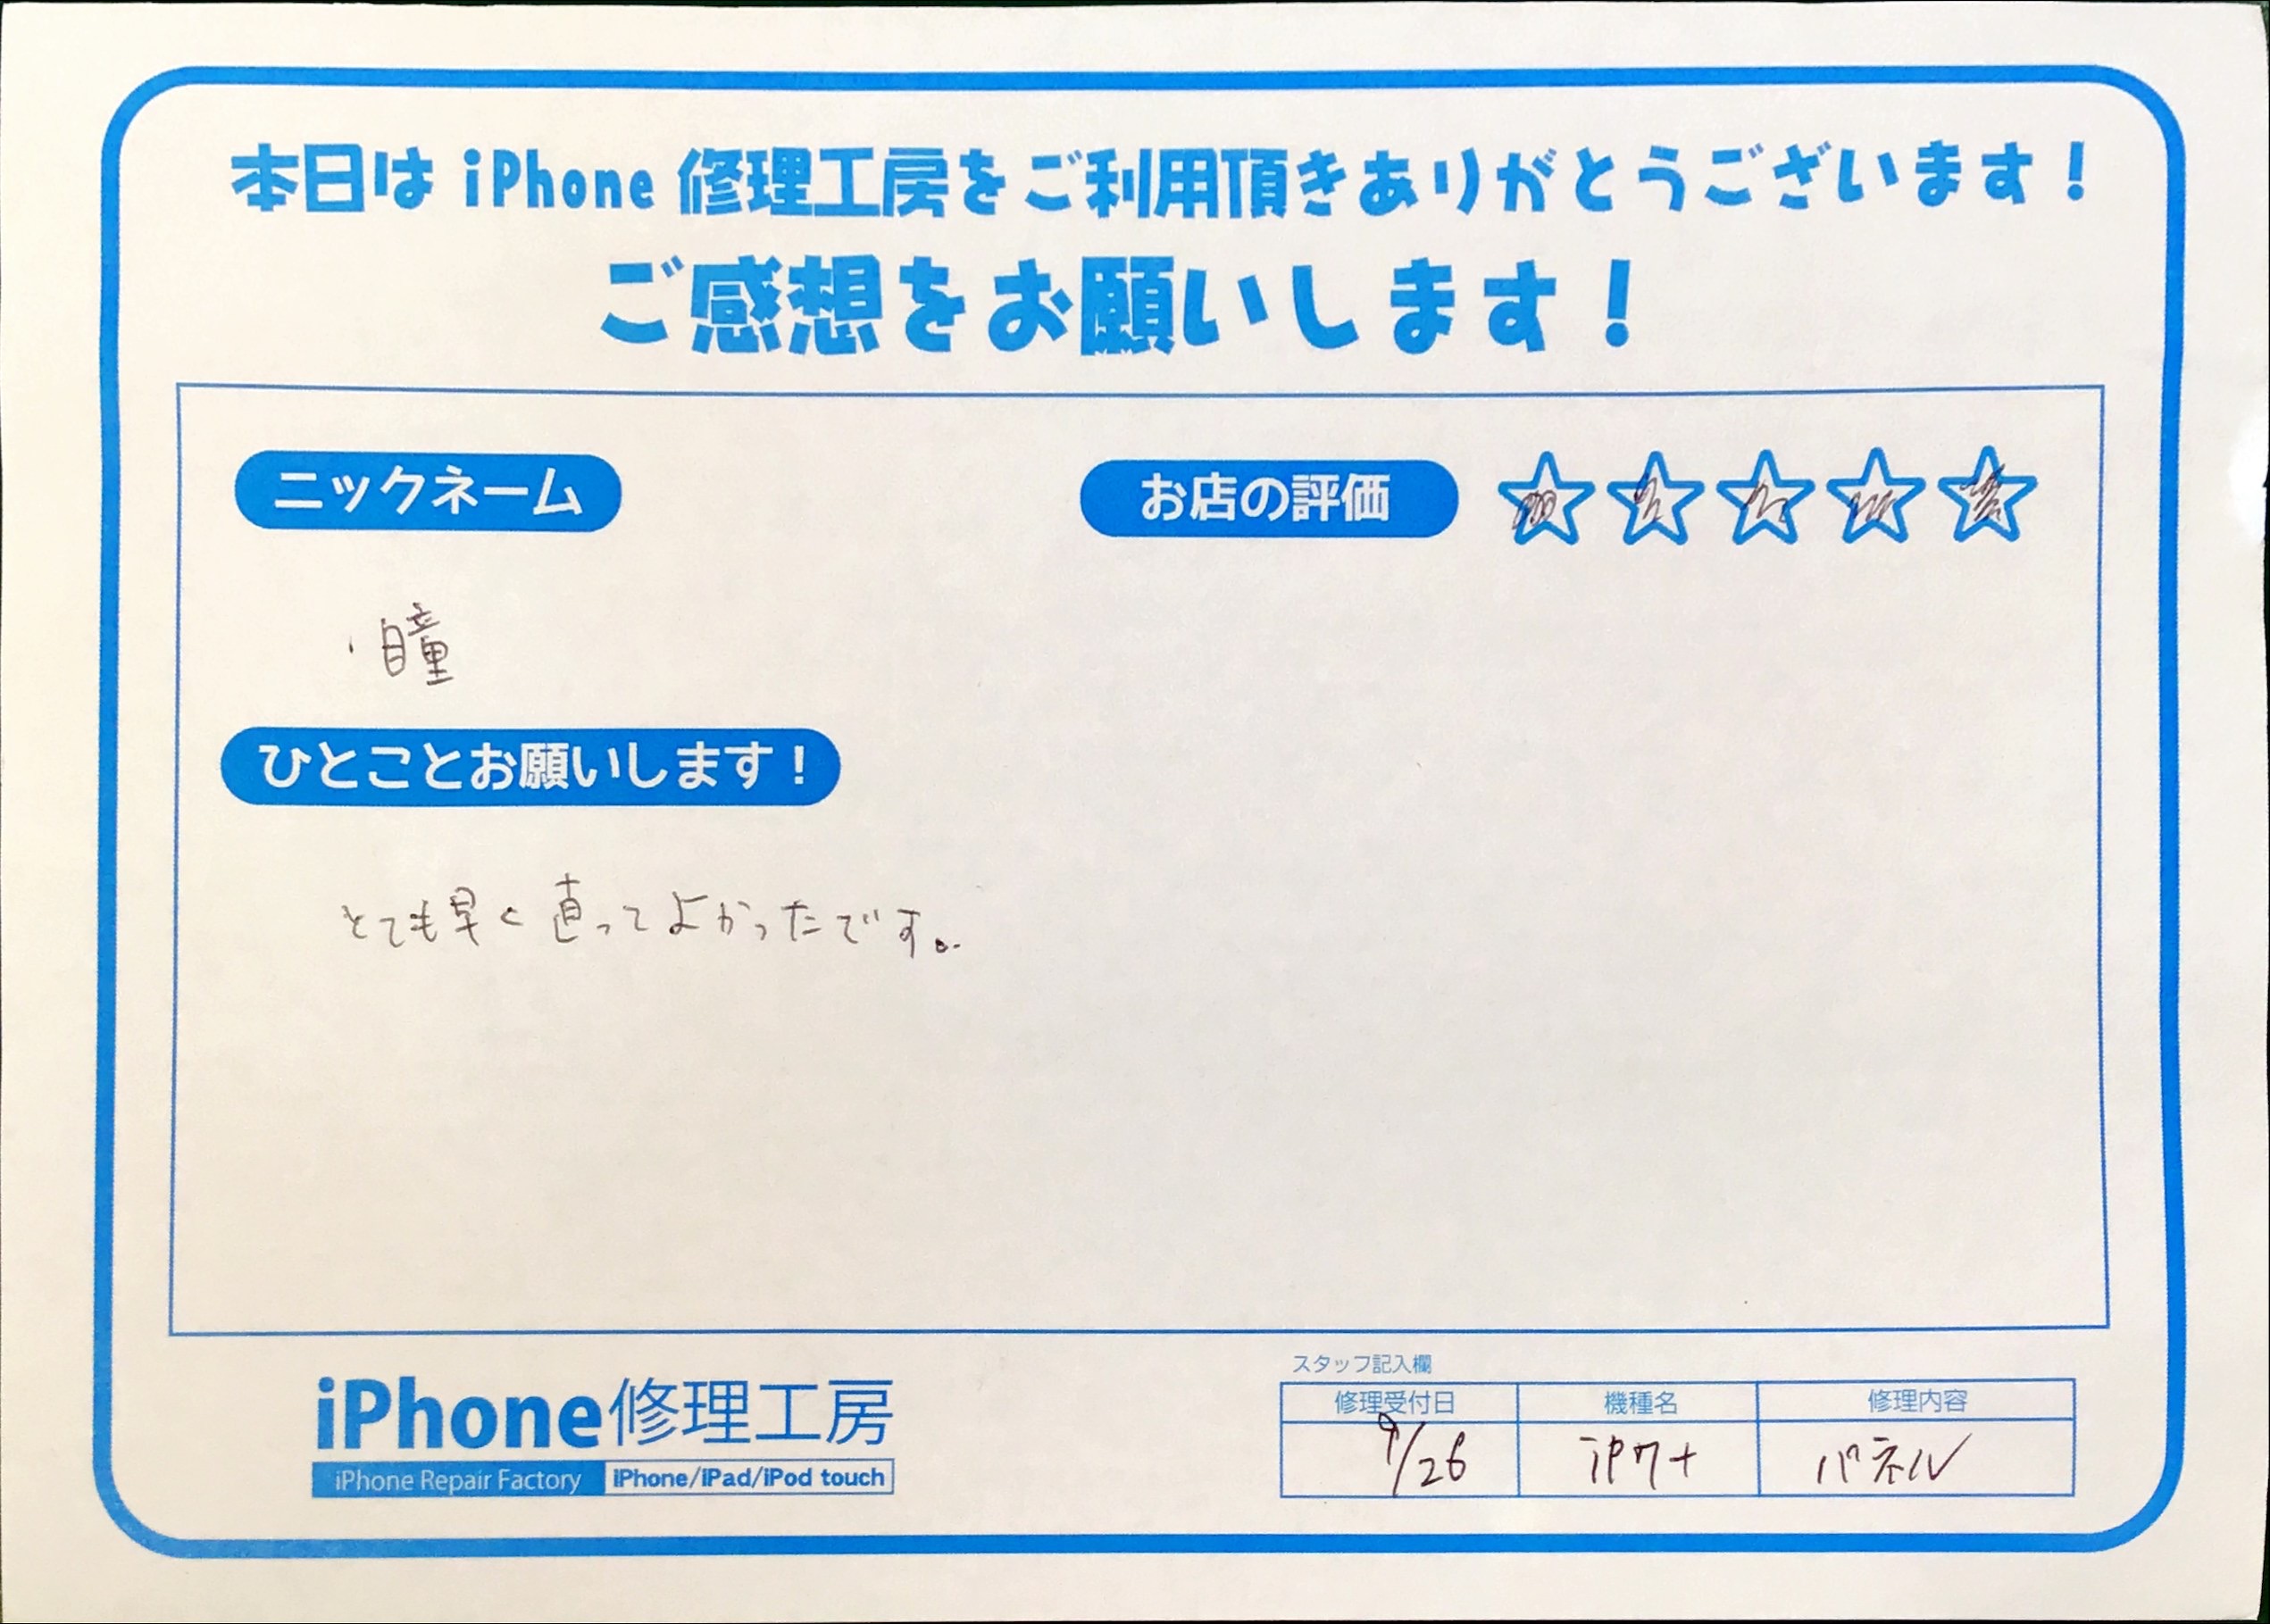 本日は iPhone 修理工房をご利用頂きありがとうございます！
ご感想をお願いします！
ニックネーム
お店の評価
瞳
ひとことお願いします！
とても早く直ってよかったです。
iPhone修理工房
iPhone Repair Factory iPhone/iPad/iPod touch
スタッフ記入欄
修理受付日 機種名 修理内容
9/26 iP7+ パネル